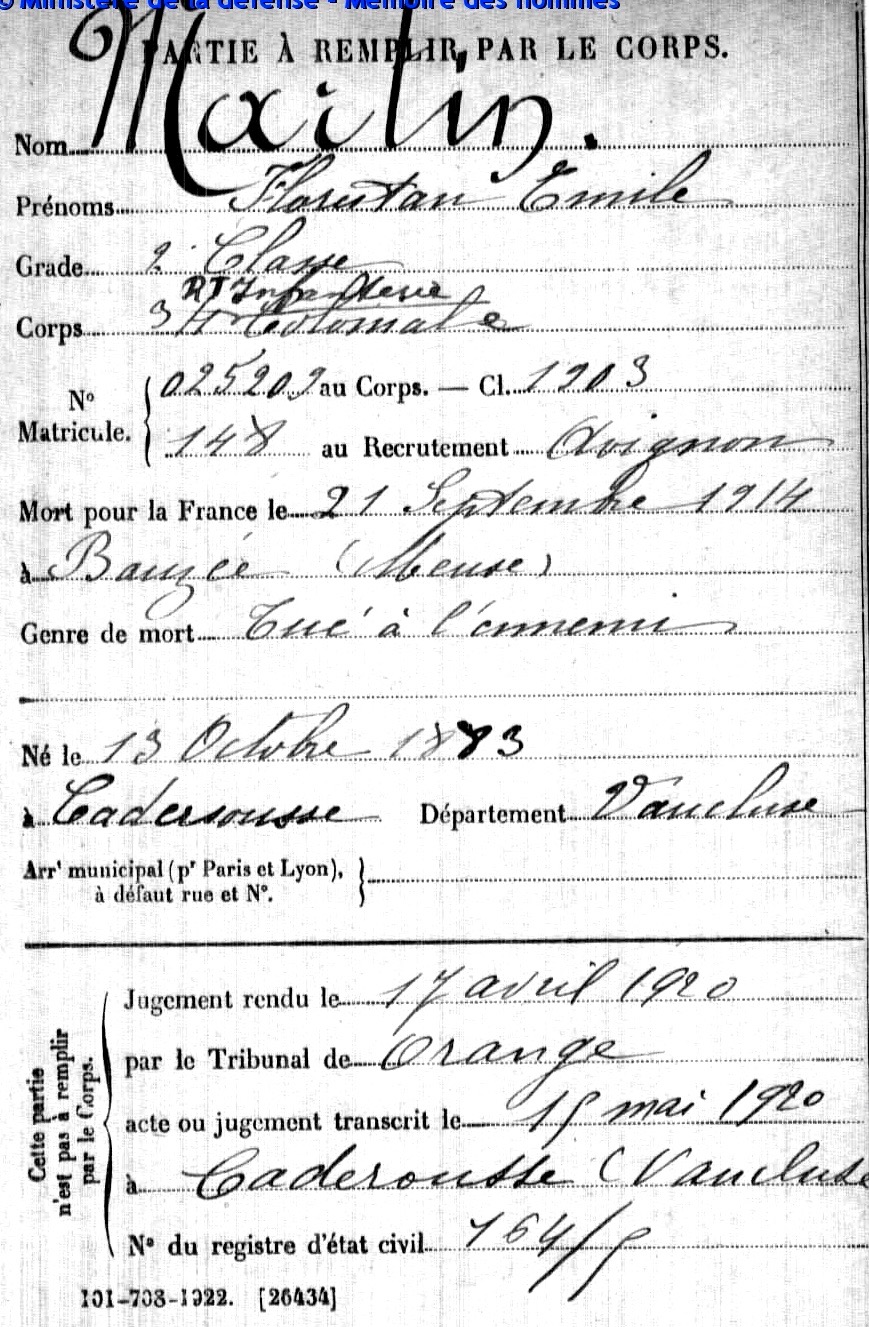 © Ministère de la défense - Mémoire des hommes
PARTIE À REMPLIR PAR LE CORPS.
Nom Martin.
Prénoms Florestan Emile
Grade 2e Classe
RT Infanterie
Corps Coloniale
No Matricule. { 025209 au Corps. — Cl. 1903
148 au Recrutement Avignon
Mort pour la France le 21 Septembre 1914
à Bauzée (Meuse)
Genre de mort Tué à l'ennemi
Né le 13 Octobre 1883
à Caderousse Département Vaucluse
Arrt municipal (pr Paris et Lyon), }
à défaut rue et No.
Cette partie
n'est pas à remplir
par le Corps.
Jugement rendu le 17 avril 1920
par le Tribunal de Orange
acte ou jugement transcrit le 15 mai 1920
à Caderousse (Vaucluse
No du registre d'état civil 164/5
101-708-1922. [26434]